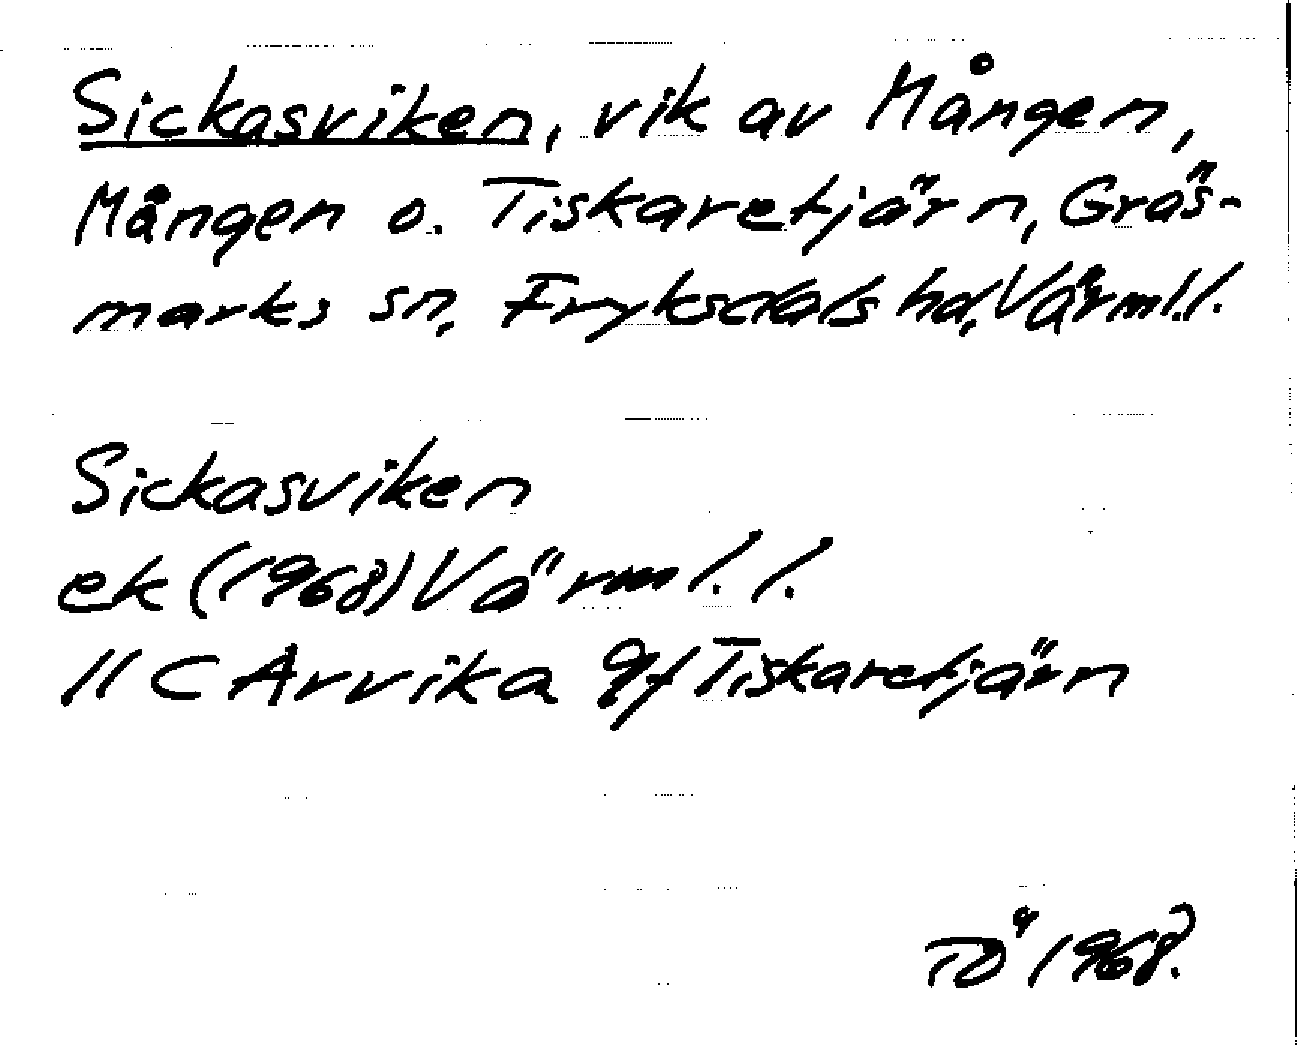 Sickasviken, vik av Mången,
Mången o. Tiskaretjärn, Gräs-
marks sn, Fryksdals hd, Värml.l.
Sickasviken
ek (1968) Värml.l.
11 C Arvika 9f Tiskaretjärn
TÖ 1968.